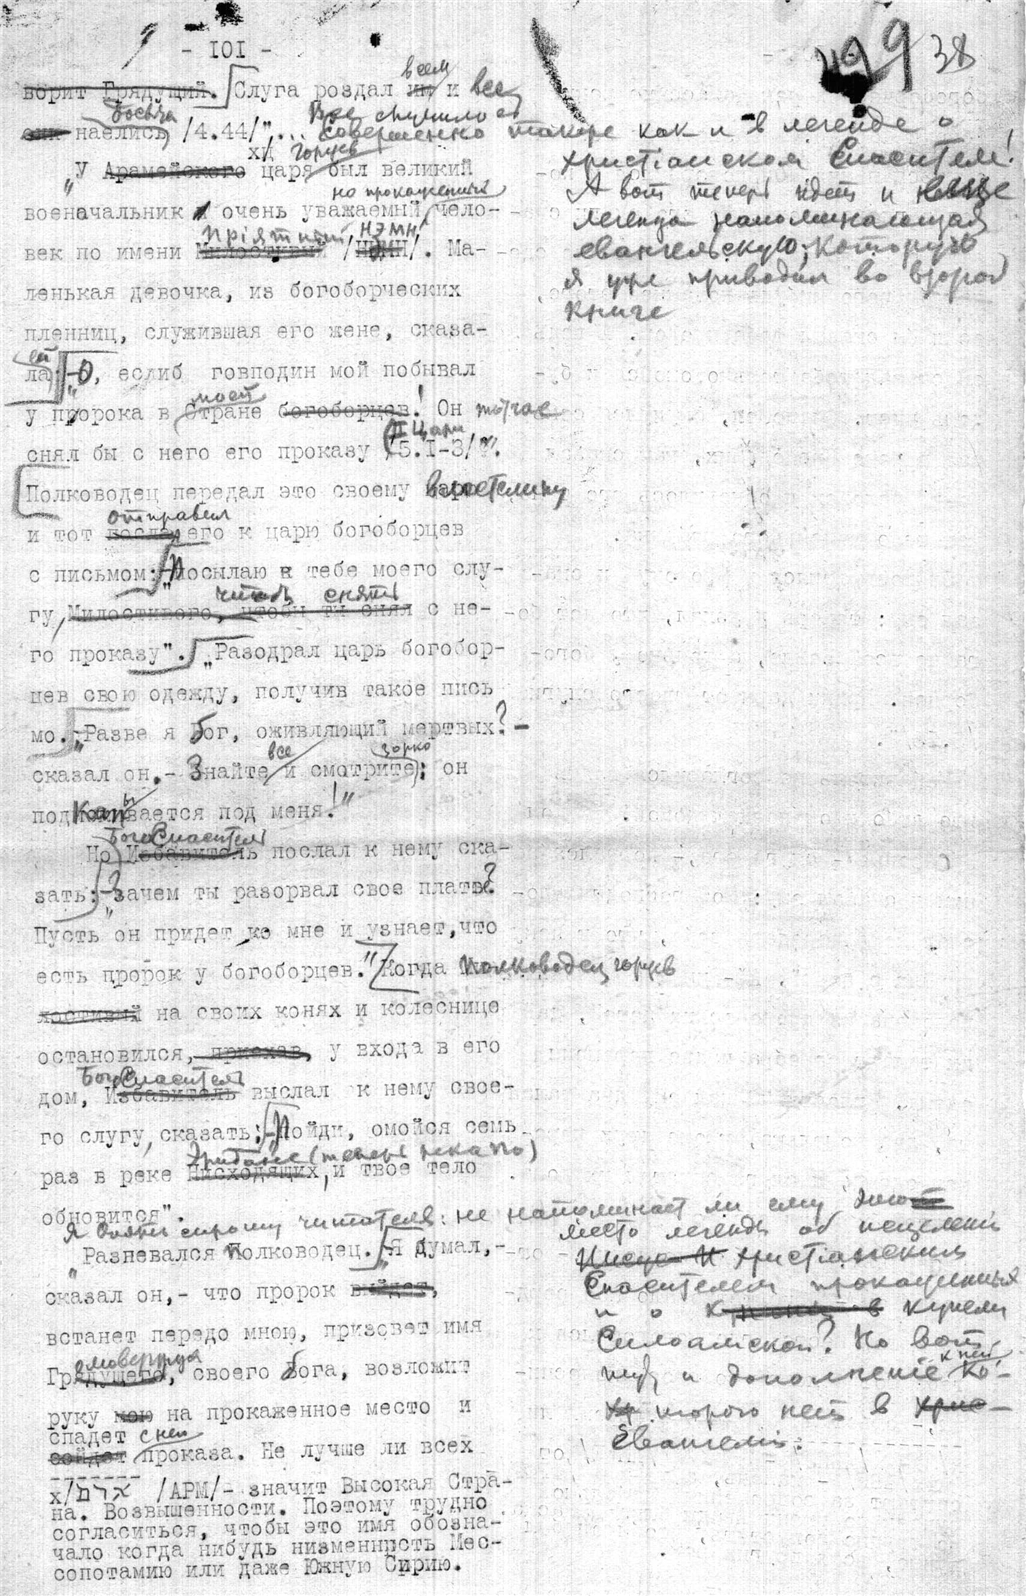 - 101 -
199 38
ворит Грядущий. Слуга роздал им всем и все
они досыта наелись /4.44/"... Все случилось
совершенно также как и в легенде о
христіанском Спасителе!
А вот теперь идет и еще
легенда напоминающая
евангельскую, которую
я уже приводил во второй
книге
"У Арамейского х/ царя горцев был великий
но прокаженный
военачальник и очень уважаемый чело-
век по имени Милостивый Пріятный /НЭМН/. Ма-
ленькая девочка, из богоборческих
пленниц, служившая его жене, сказа-
ла ей: "-О, еслиб говподин мой побывал
у пророка в моей Стране богоборцев! Он тотчас
снял бы с него его проказу (II Цари 5.1-3/".
Полководец передал это своему властелину
и тот отправил его к царю богоборцев
с письмом: "-Посылаю к тебе моего слу-
гу, Милостивого, чтобы ты снял чтоб снять с не-
го проказу". "Разодрал царь богобор-
цев свою одежду, получив такое пись
мо. "Разве я Бог, оживляющий мертвых? -
сказал он.- Знайте все и смотрите зорко: он
подкапывается под меня!"
Но Избавитель БогоСпаситель послал к нему ска-
зать: "-Зачем ты разорвал свое платье?
Пусть он придет ко мне и узнает, что
есть пророк у богоборцев." Когда полководец горцев
лостивый на своих конях и колеснице
остановился, приехав, у входа в его
дом, Избавитель БогоСпаситель выслал к нему свое-
го слугу, сказать: "-Пойди, омойся семь
раз в реке Нисходящих Эридане (теперь река По), и твое тело
обновится".
Я опять спрошу читателя: не напоминает ли ему это
место легенды об исцелении
Иисуса И христіанским
Спасителем прокаженных
и о купели
Силоамской? Но вот
тут и дополнение к ней ко-
торого нет в
Евангелии:
"Разневался полководец. "Я думал,-
сказал он,- что пророк выйдет,
встанет передо мною, призовет имя
Грядущего Громовержца, своего бога, возложит
руку мою на прокаженное место и
спадет с неи
сойдет проказа. Не лучше ли всех
х/ ארם /АРМ/- значит Высокая Стра-
на. Возвышенности. Поэтому трудно
согласиться, чтобы это имя обозна-
чало когда нибудь низменность Мес-
сопотамию или даже Южную Сирию.